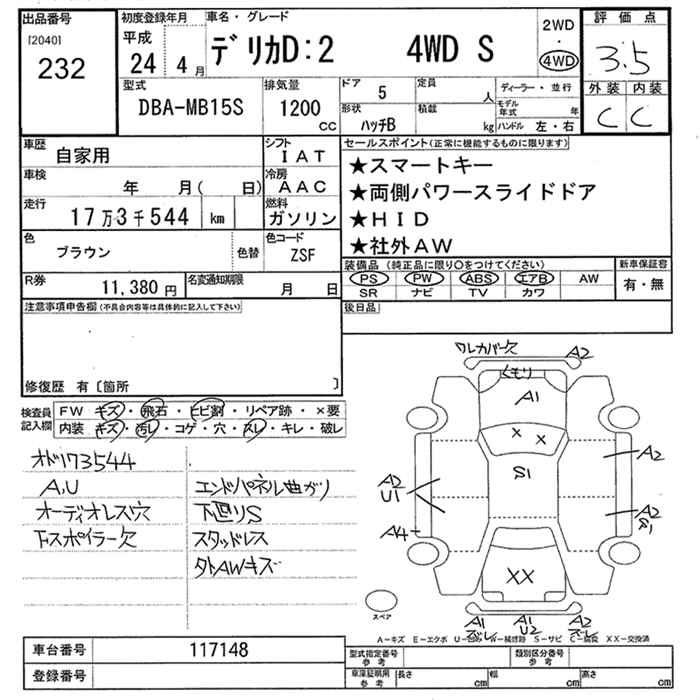 出品番号
[2040]
232
初度登録年月
平成
24 4 月
車名・グレード
デリカD:2 4WD S
2WD
4WD
評価点
3.5
外装 内装
C C
型式
DBA-MB15S
排気量
1200 CC
ドア 5
形状 ハッチB
定員 人
積載 kg
ディーラー・並行
モデル年式 年
ハンドル 左・右
車歴 自家用
シフト IAT
車検 年 月( 日)
冷房 AAC
走行 17万3千544 km
燃料 ガソリン
色 ブラウン 色替
色コード ZSF
R券 11,380 円
名変通知期限 月 日
セールスポイント(正常に機能するものに限ります)
★スマートキー
★両側パワースライドドア
★HID
★社外AW
装備品(純正品に限り○をつけてください)
PS PW ABS エアB AW
SR ナビ TV カワ
新車保証書
有・無
後日品
注意事項申告欄(不具合内容等は具体的に記入して下さい)
修復歴 有〔箇所 〕
検査員記入欄
FW キズ・飛石・ヒビ割・リペア跡・×要
内装 キズ・汚レ・コゲ・穴・スレ・キレ・破レ
オド173544
A,U
オーディオレス穴
Fスポイラー欠
エンドパネル曲がり
下廻りS
スタッドレス
外AWキズ
ワレカバー欠 A2
くもり
A1
× ×
S1
A2
A2
U1
A2
S1
A4
XX
A1 A1 A2
ズレ U2 ズレ
スペア
A-キズ E-エクボ U-凹み W-補修跡 S-サビ C-腐食 XX-交換済
車台番号 117148
登録番号
型式指定番号
参考
類別区分番号
参考
車庫証明用
参考
長さ cm 幅 cm 高さ cm